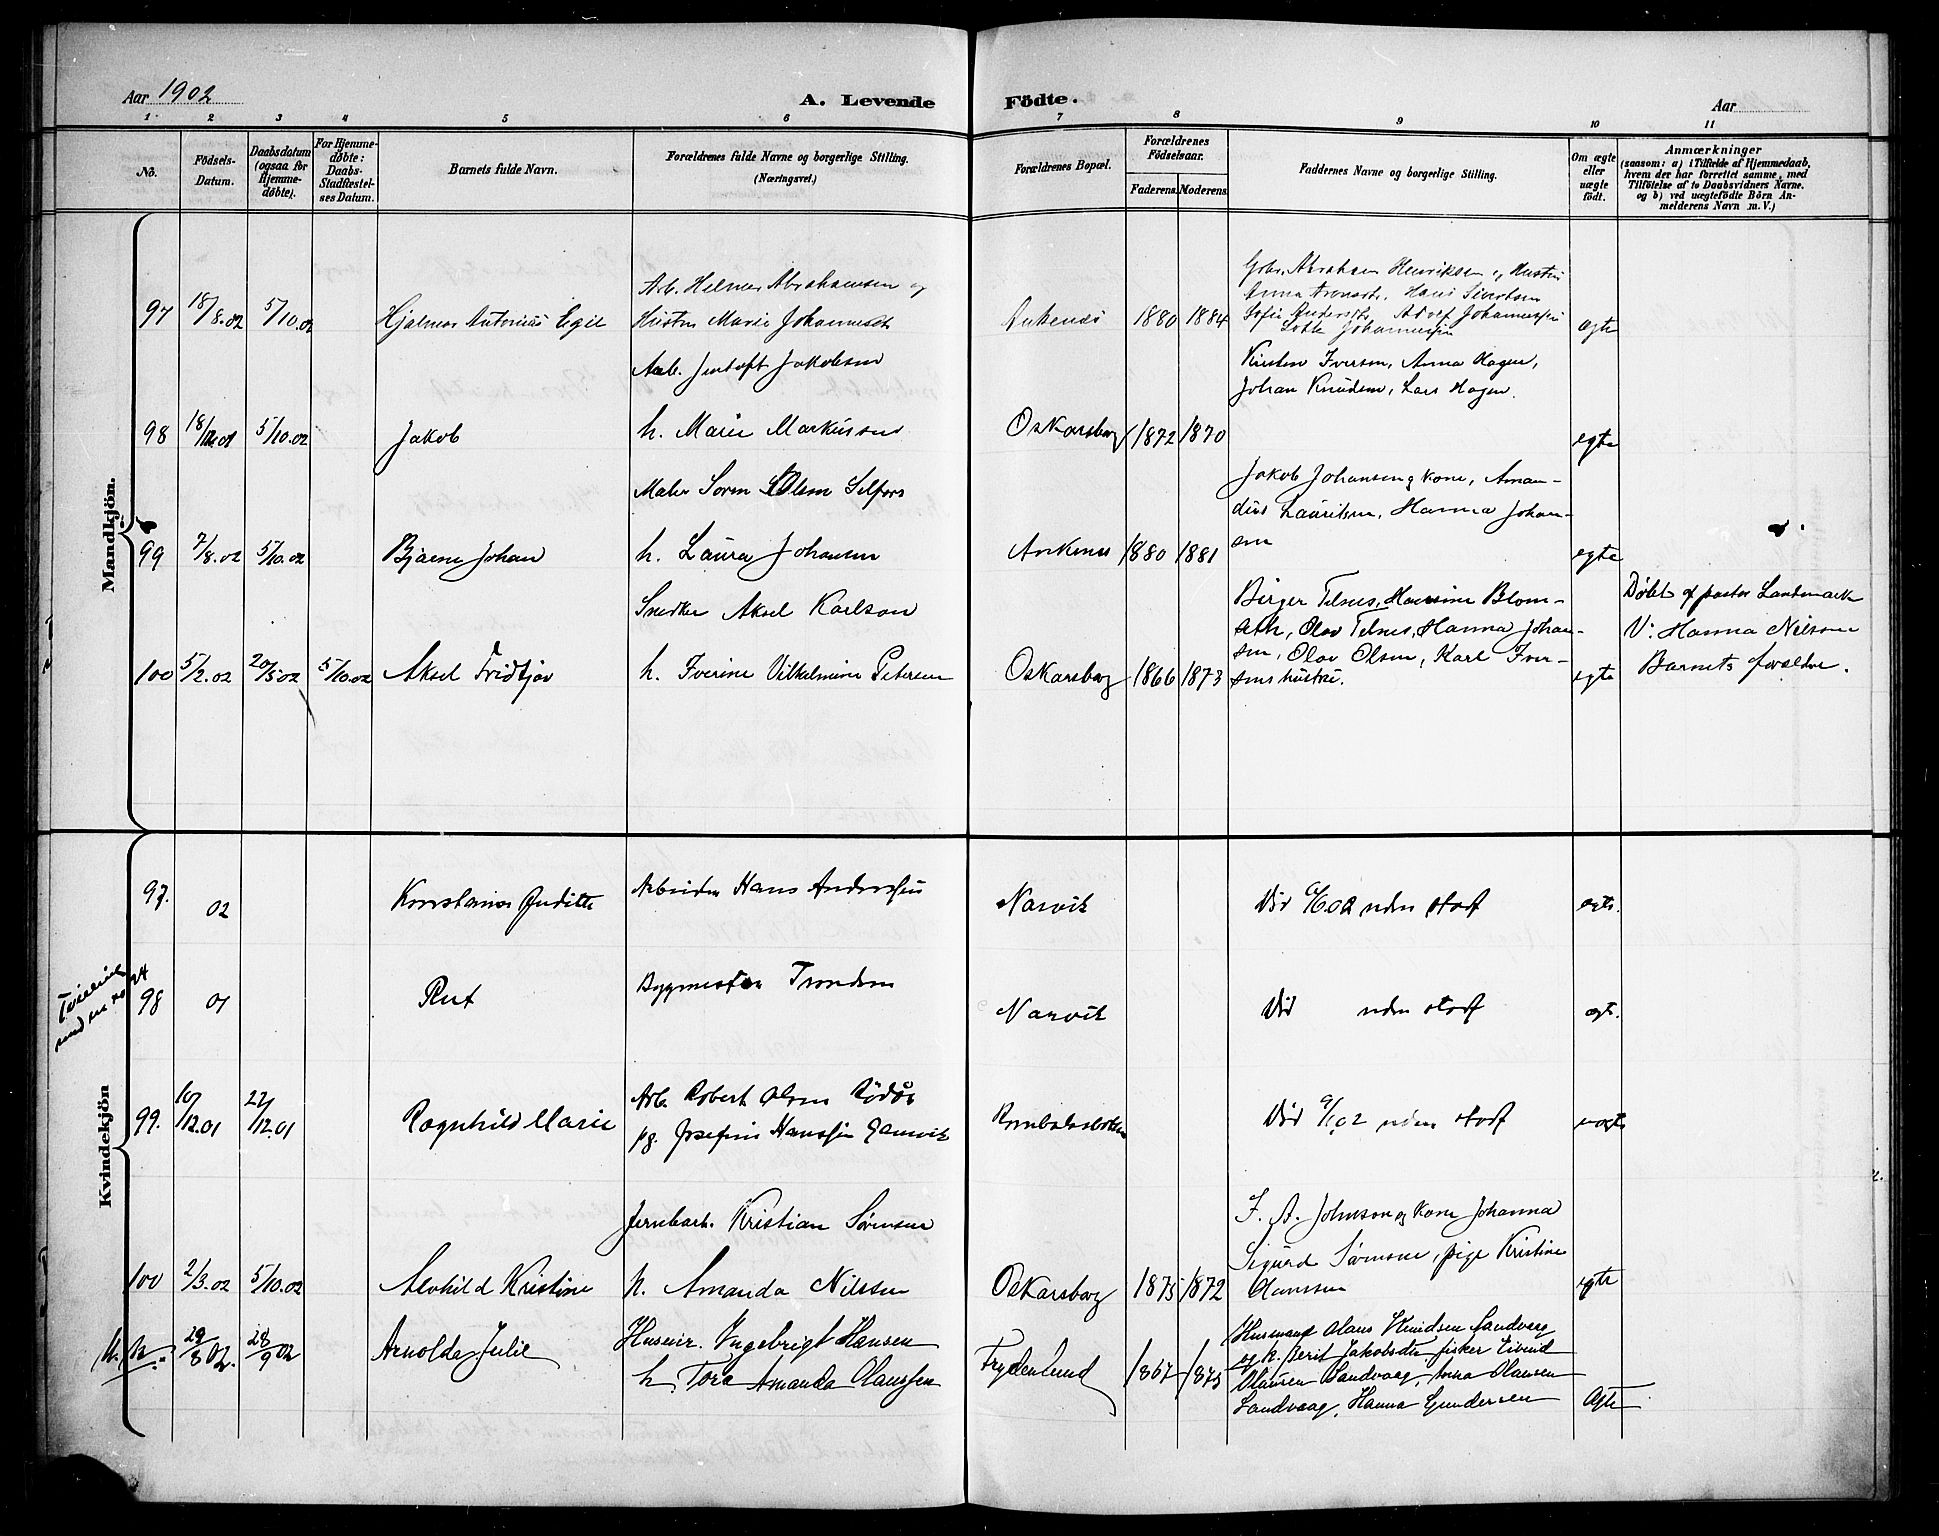 Aar 1902
A. Levende
Födte.
Aar
1 2 3 4 5 6 7 8 9 10 11
No.
Födsels-
Datum.
Daabsdatum
(ogsaa for
Hjemme-
døbte).
For Hjemme-
døbte:
Daabs-
Stadfæstel-
ses Datum.
Barnets fulde Navn.
Forældrenes fulde Navne og borgerlige Stilling.
(Næringsvei.)
Forældrenes Bopæl.
Forældrenes
Födselsaar.
Faderens. Moderens.
Faddernes Navne og borgerlige Stilling.
Om ægte
eller
uægte
födt.
Anmærkninger
(saasom: a) i Tilfælde af Hjemmedaab,
hvem der har forrettet samme, med
Tilföielse af to Daabsvidners Navne.
og b) ved uægtefödte Börn An-
melderens Navn m. V.)
Mandkjön.
97 18/8.02 5/10.02 Hjalmar Antonius Egil
Arb. Helmer Abrahamsen og
Hustru Marie Johannesdt
Ankenes 1880 1884
Abraham Henriksen og Hustru
Anna Hans Sivertsen
Sofie Adolf Johannessen
Lotte Johannessen
egte
98 5/10.02 Jakob
Arb. Jentoft Jakobsen
h. Marie Markussen
Oskarsborg 1872 1870
Kirsten Iversen, Anna Hagen,
Johan Knudsen, Lars Hagen.
egte
99 7/8.02 5/10.02 Bjarne Johan
Maler Soren Olsen Selfors
h. Laura Johansen
Ankenes 1880 1881
Jakob Johansen og kone, Aman-
dius Lauritsen, Hanna Johan-
sen
egte
100 5/2.02 20/5.02 5/10.02 Aksel Fridtjov
Snedker Aksel Karlson
h. Iverine Vilhelmine Petersen
Oskarsborg 1866 1873
Birger Telnes, Hansine Blom-
seth, Olav Telnes, Hanna Johan-
sen, Olav Olsen, Karl Iver-
sens hustru.
egte
Døbt af pastor Landmark
V: Hanna Nilsen
Barnets forældre.
Kvindekjön
97. 02 Konstanse Juditte
Arbeider Hans Anderssen
Narvik
Död 02 uden attest
egte.
Tvilling
med no 24
98 01 Rut
Bygmester Trondsen
Narvik
Död uden attest
egte.
99. 10/12.01 27/12.01 Ragnhild Marie
Arb. Robert Olsen Rödös
pg. Josefine Hanssen Gamvik
Rombaksbotten
Död 9/1.02 uden attest
uegte
100 2/3.02 5/10.02 Alvhild Kristine
Jernbarb. Kristian Sørensen
h. Amanda Nilssen
Oskarsborg 1875 1872
F. A. Johnson og kone Johanna
Sigurd Sørensen, pige Kristine
Hanssen
egte
29/8 02. 28/9 02 Arnolda Julie
Huseier. Ingebrigt Hansen
h. Tora Amanda Olaussen
Frydenlund 1867 1875
Husmand Olaus Knudsen Sandvaag
og h. Berit Jakobsdtr, fisker Eivind
Olausen Sandvaag, Anna Olausen
Sandvaag, Hanna Gundersen
Ægte